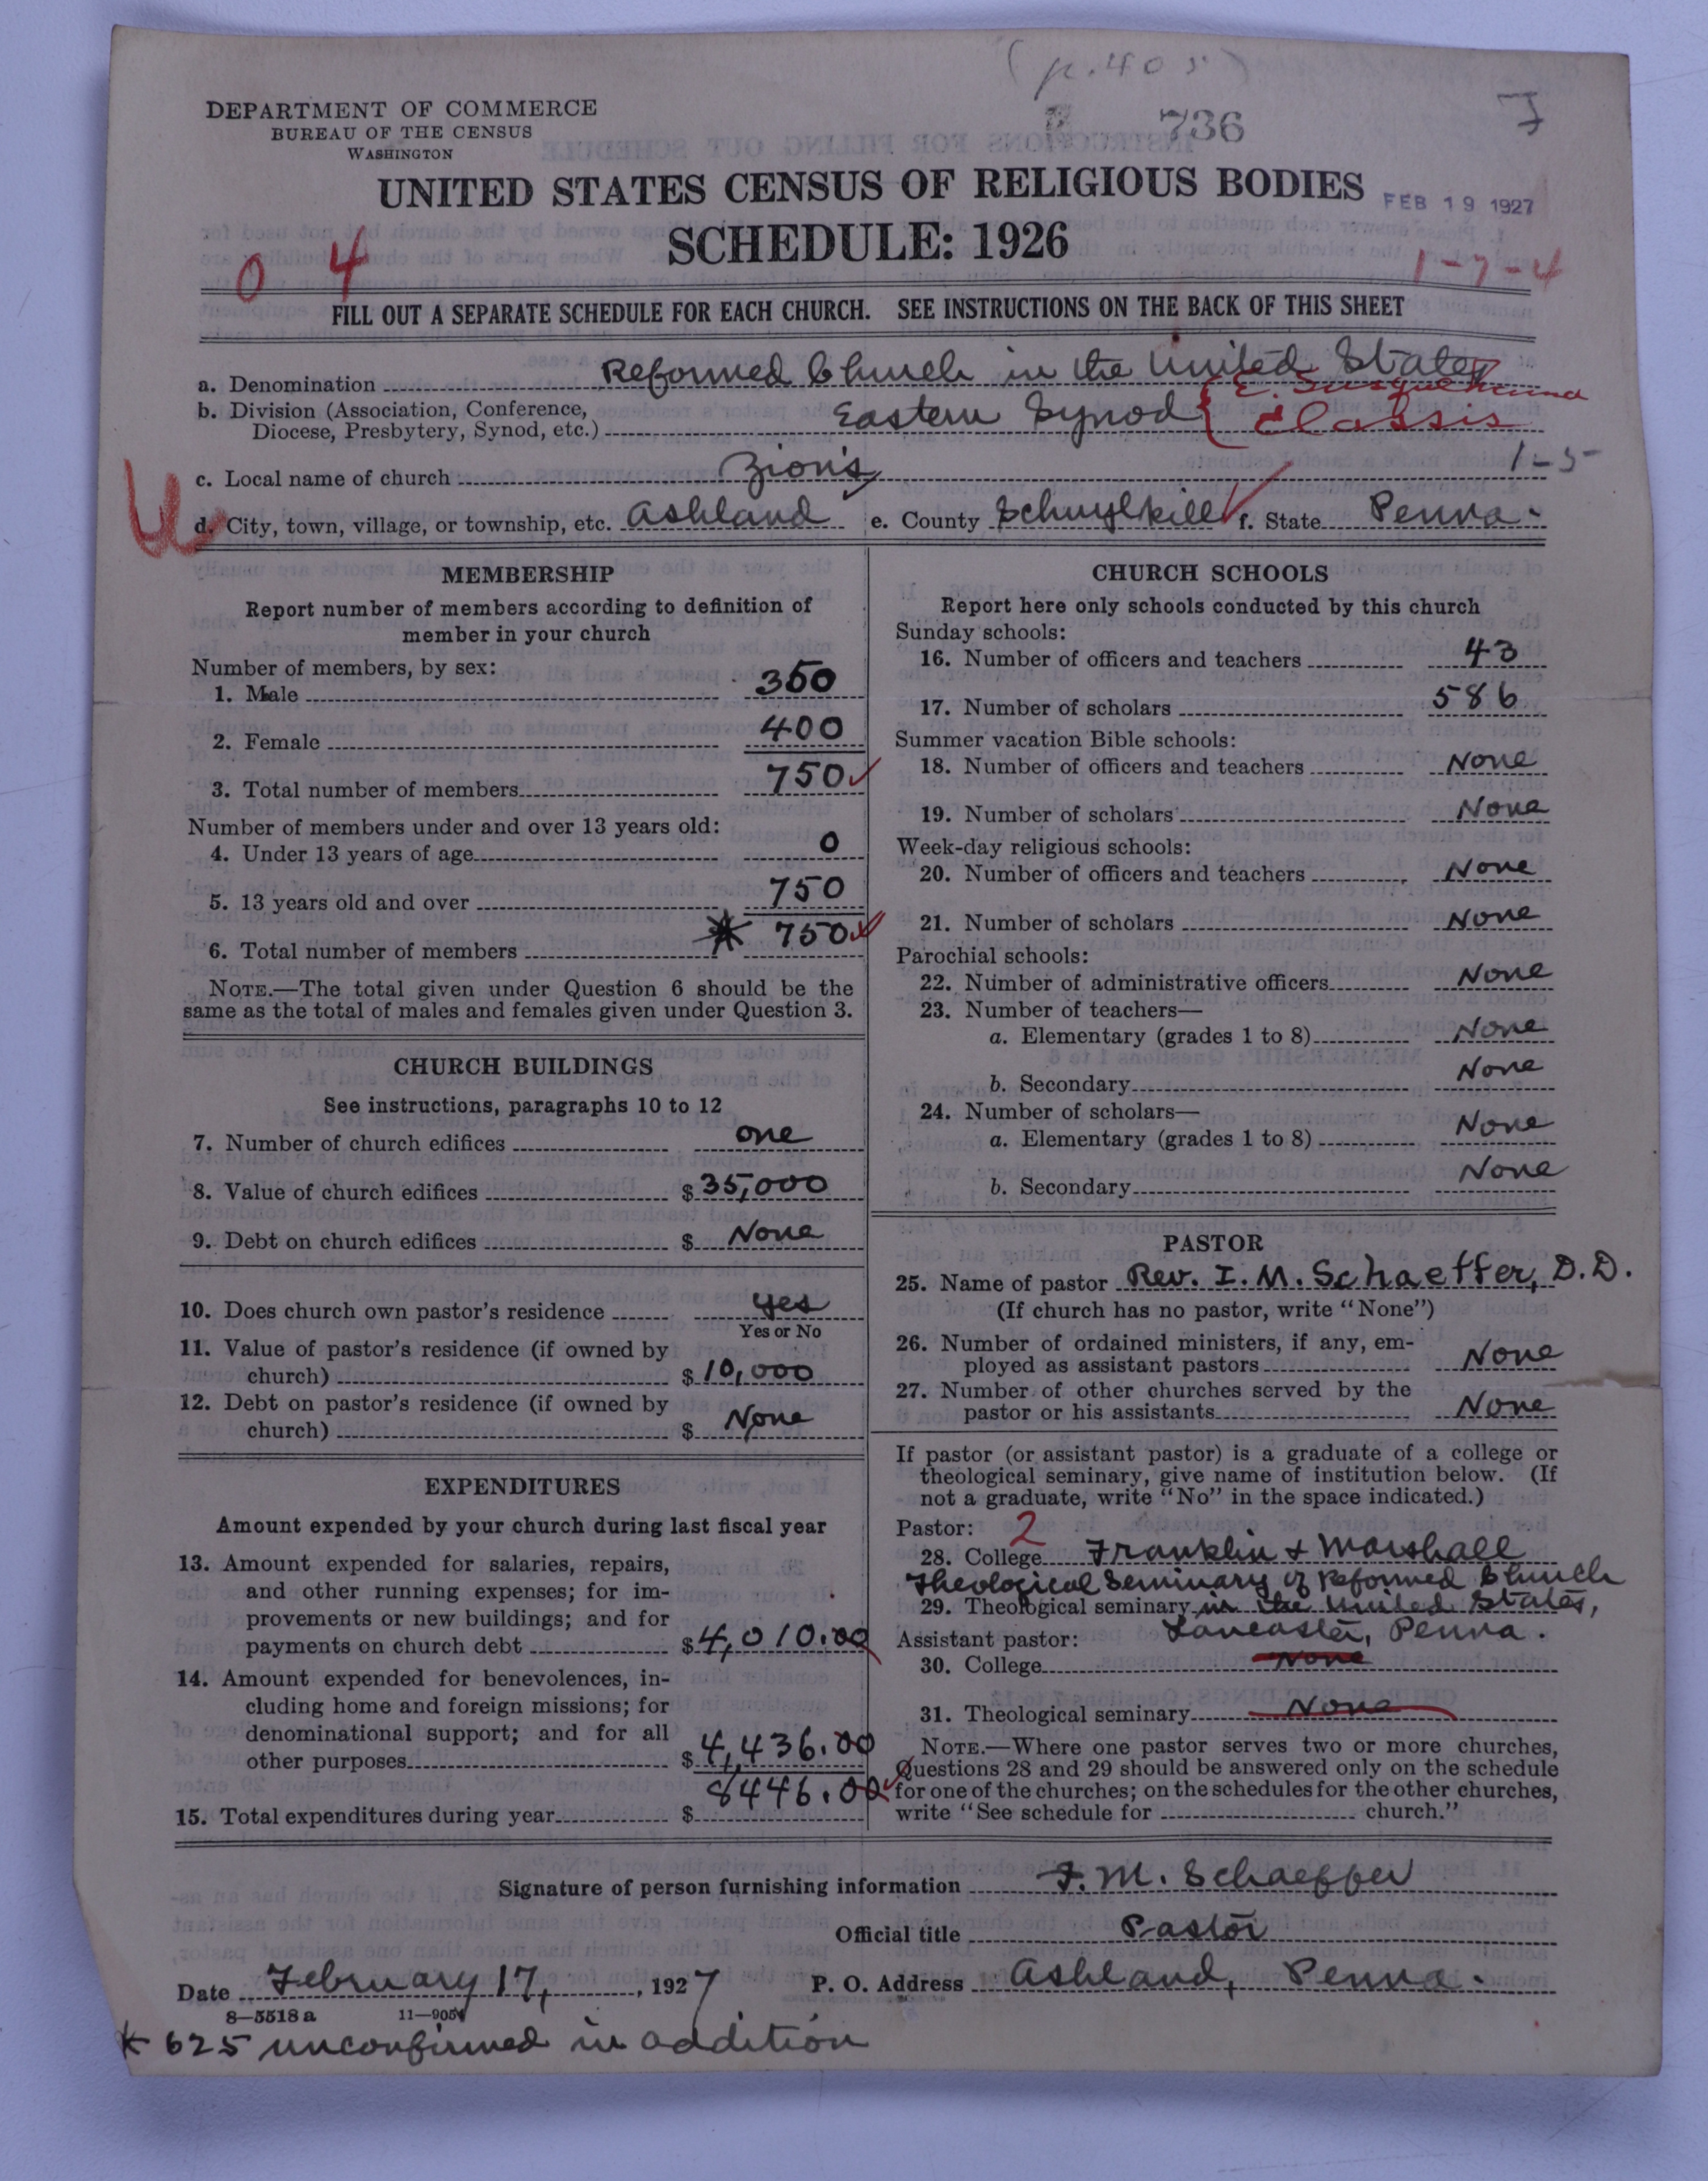 (p. 405)
DEPARTMENT OF COMMERCE
BUREAU OF THE CENSUS
WASHINGTON
736
UNITED STATES CENSUS OF RELIGIOUS BODIES
FEB 19 1927
SCHEDULE: 1926
0 4
1-7-4
FILL OUT A SEPARATE SCHEDULE FOR EACH CHURCH. SEE INSTRUCTIONS ON THE BACK OF THIS SHEET
a. Denomination Reformed Church in the United States
b. Division (Association, Conference, Diocese, Presbytery, Synod, etc.) Eastern Synod { E. Susquehanna Classis
c. Local name of church Zion's 1-5
d. City, town, village, or township, etc. Ashland e. County Schuylkill f. State Penna.
MEMBERSHIP
Report number of members according to definition of
member in your church
Number of members, by sex:
1. Male 350
2. Female 400
3. Total number of members 750
Number of members under and over 13 years old:
4. Under 13 years of age 0
5. 13 years old and over 750
6. Total number of members * 750
NOTE.—The total given under Question 6 should be the
same as the total of males and females given under Question 3.
CHURCH BUILDINGS
See instructions, paragraphs 10 to 12
7. Number of church edifices one
8. Value of church edifices $ 35,000
9. Debt on church edifices $ None
10. Does church own pastor's residence yes
Yes or No
11. Value of pastor's residence (if owned by
church) $ 10,000
12. Debt on pastor's residence (if owned by
church) $ None
EXPENDITURES
Amount expended by your church during last fiscal year
13. Amount expended for salaries, repairs,
and other running expenses; for im-
provements or new buildings; and for
payments on church debt $ 4,010.00
14. Amount expended for benevolences, in-
cluding home and foreign missions; for
denominational support; and for all
other purposes $ 4,436.00
15. Total expenditures during year $ 8446.00
CHURCH SCHOOLS
Report here only schools conducted by this church
Sunday schools:
16. Number of officers and teachers 43
17. Number of scholars 586
Summer vacation Bible schools:
18. Number of officers and teachers None
19. Number of scholars None
Week-day religious schools:
20. Number of officers and teachers None
21. Number of scholars None
Parochial schools:
22. Number of administrative officers None
23. Number of teachers—
a. Elementary (grades 1 to 8) None
b. Secondary None
24. Number of scholars—
a. Elementary (grades 1 to 8) None
b. Secondary None
PASTOR
25. Name of pastor Rev. I. M. Schaeffer, D.D.
(If church has no pastor, write "None")
26. Number of ordained ministers, if any, em-
ployed as assistant pastors None
27. Number of other churches served by the
pastor or his assistants None
If pastor (or assistant pastor) is a graduate of a college or
theological seminary, give name of institution below. (If
not a graduate, write "No" in the space indicated.)
Pastor: 2
28. College Franklin & Marshall
Theological Seminary of Reformed Church
29. Theological seminary in the United States,
Assistant pastor: Lancaster, Penna.
30. College None
31. Theological seminary None
NOTE.—Where one pastor serves two or more churches,
Questions 28 and 29 should be answered only on the schedule
for one of the churches; on the schedules for the other churches,
write "See schedule for church."
Signature of person furnishing information I. M. Schaeffer
Official title Pastor
Date February 17, 1927 P. O. Address Ashland, Penna.
8—5518 a 11—9051
* 625 unconfirmed in addition